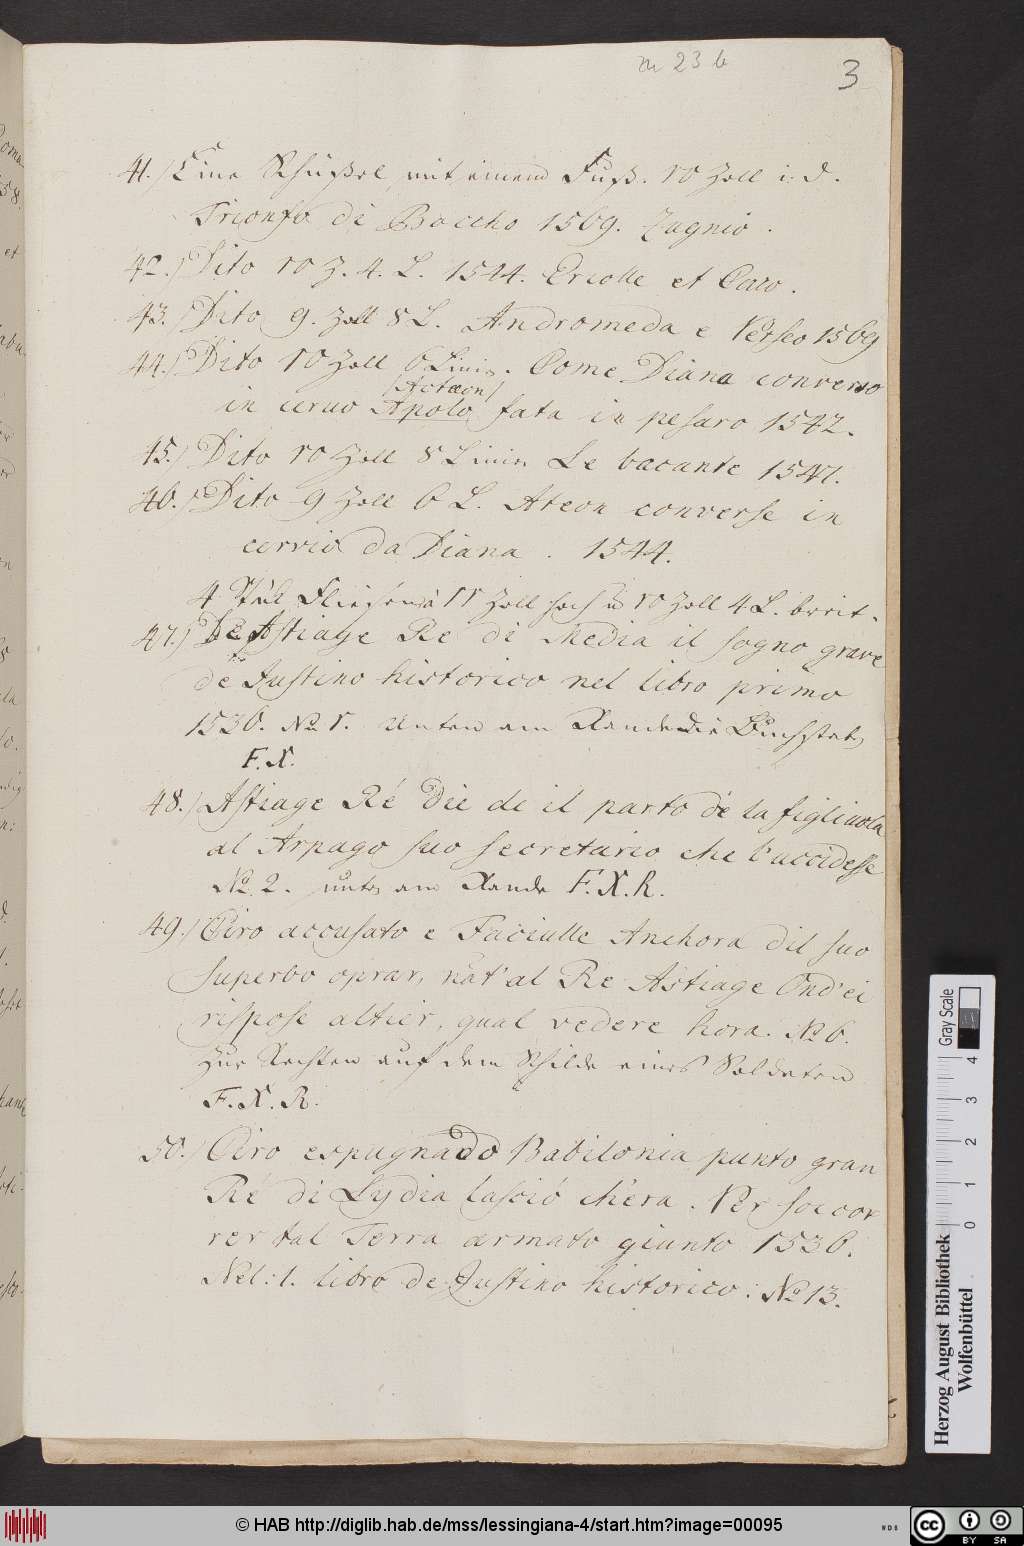 zu 23 b
3
41.) Eine Schüßel mit einem Fuß. 10 Zoll i. D.
Trionfo di Baccho 1569. Zagnio.
42.) Dito 10 Z. 4. L. 1544. Ercolle et Caco.
43.) Dito 9. Zoll 8 L. Andromeda e Perseo 1569
44.) Dito 10 Zoll 6 Linin. Come Diana converso
(Actæon)
in ceruo Apolo fata in pesaro 1542.
45.) Dito 10 Zoll 8 Linin Le bacante 1541.
46.) Dito 9 Zoll 6 L. Ateon converse in
cervio da Diana. 1544.
4 Stük Fliesen à 11 Zoll hoch u 10 Zoll 4 L. breit.
47.) De Astiage Re di Media il sogno grave
de Justino historico nel libro primo
1536. No 1. Unten am Rande die Buchstab
F. X.
48.) Astiage Ré Die de il parto dé la figliuola
al Arpago suo secretario che l'uccidesse
No 2. unten am Rande F. X. R.
49.) Ciro accusato e Faciulle Anchora dil suo
superbo oprar, nat' al Re Astiage Ond'ei
rispose altier, qual vedere hora. No 6.
Zur Rechten auf dem Schilde eines Soldaten
F. X. R.
50.) Ciro espugnado Babilonia punto gran
Ré di Lydia lasció ch'era. Per soccor
rer tal Terra armato giunto 1536.
Nel: 1. libro de Justino historico: No 13.
Herzog August Bibliothek
Wolfenbüttel
0 1 2 3 4
Gray Scale
© HAB http://diglib.hab.de/mss/lessingiana-4/start.htm?image=00095
cc BY SA